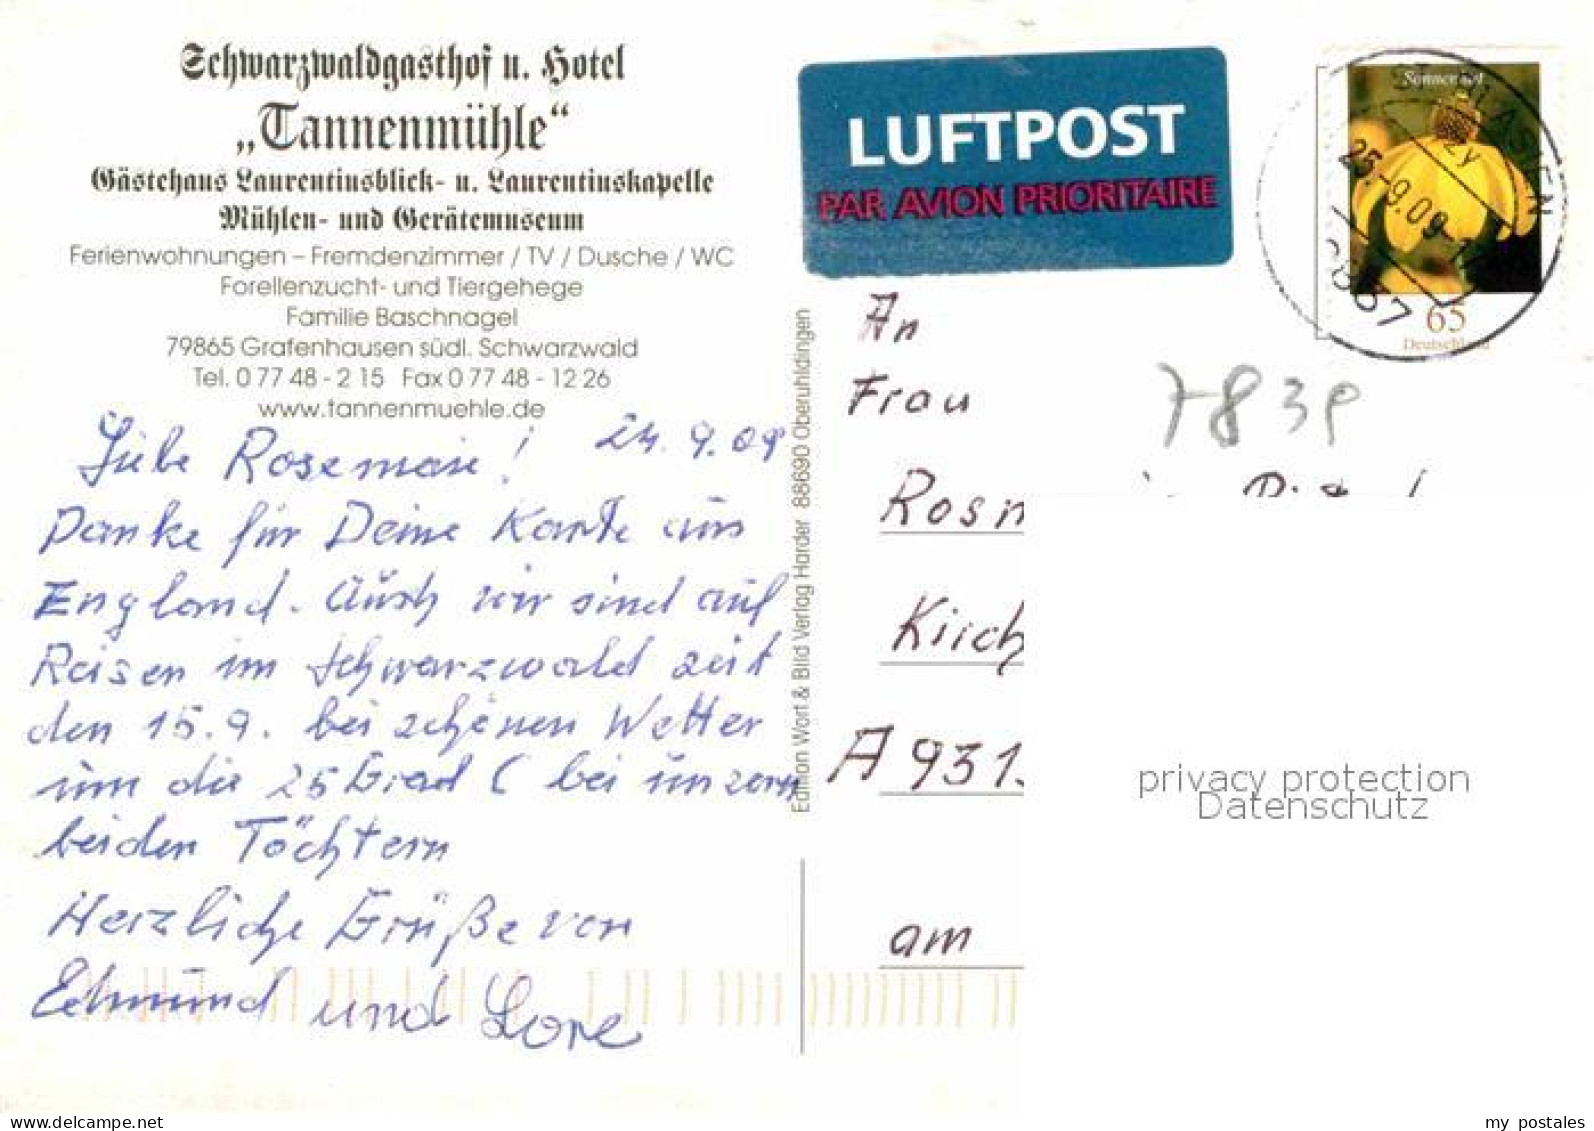 Schwarzwaldgasthof u. Hotel
„Tannenmühle“
Gästehaus Laurentiusblick- u. Laurentiuskapelle
Mühlen- und Gerätemuseum
Ferienwohnungen – Fremdenzimmer / TV / Dusche / WC
Forellenzucht- und Tiergehege
Familie Baschnagel
79865 Grafenhausen südl. Schwarzwald
Tel. 0 77 48 - 2 15 Fax 0 77 48 - 12 26
www.tannenmuehle.de
24.9.09
Liebe Rosemarie!
Danke für Deine Karte aus
England. Auch wir sind auf
Reisen im Schwarzwald seit
den 15.9. bei schönen Wetter
um die 25 Grad (bei unzern
beiden Töchtern
Herzliche Grüße von
Edmund und Lore
Edition Wort & Bild Verlag Harder 88690 Oberuhldingen
LUFTPOST
PAR AVION PRIORITAIRE
Sonnenhut
65
Deutschland
ST. BLASIEN
zy
25.-9.09-17
An
Frau
7839
Rosm
Kirch
A 931
am
privacy protection
Datenschutz
www.delcampe.net
my_postales